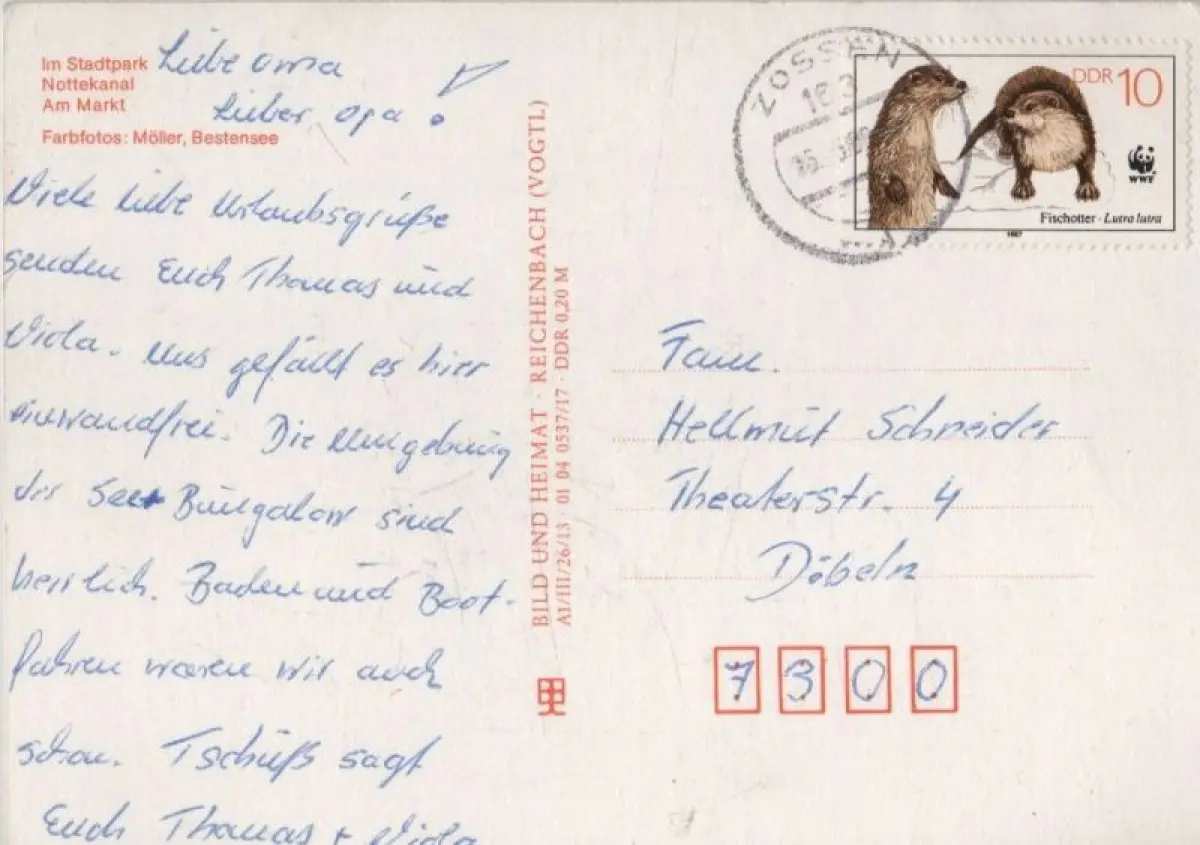 Im Stadtpark
Nottekanal
Am Markt
Farbfotos: Möller, Bestensee
Liebe Oma
Lieber Opa!
Viele liebe Urlaubsgrüße
senden Euch Thomas und
Viola. Uns gefällt es hier
einwandfrei. Die Umgebung
der See Bungalow sind
herrlich. Baden und Boot-
fahren waren wir auch
schon. Tschüß sagt
Euch Thomas + Viola
BILD UND HEIMAT · REICHENBACH (VOGTL)
A1/III/26/13 · 01 04 0537/17 · DDR 0,20 M
ZOSSEN
DDR 10
WWF
Fischotter · Lutra lutra
1987
Fam.
Hellmut Schneider
Theaterstr. 4
Döbeln
7300